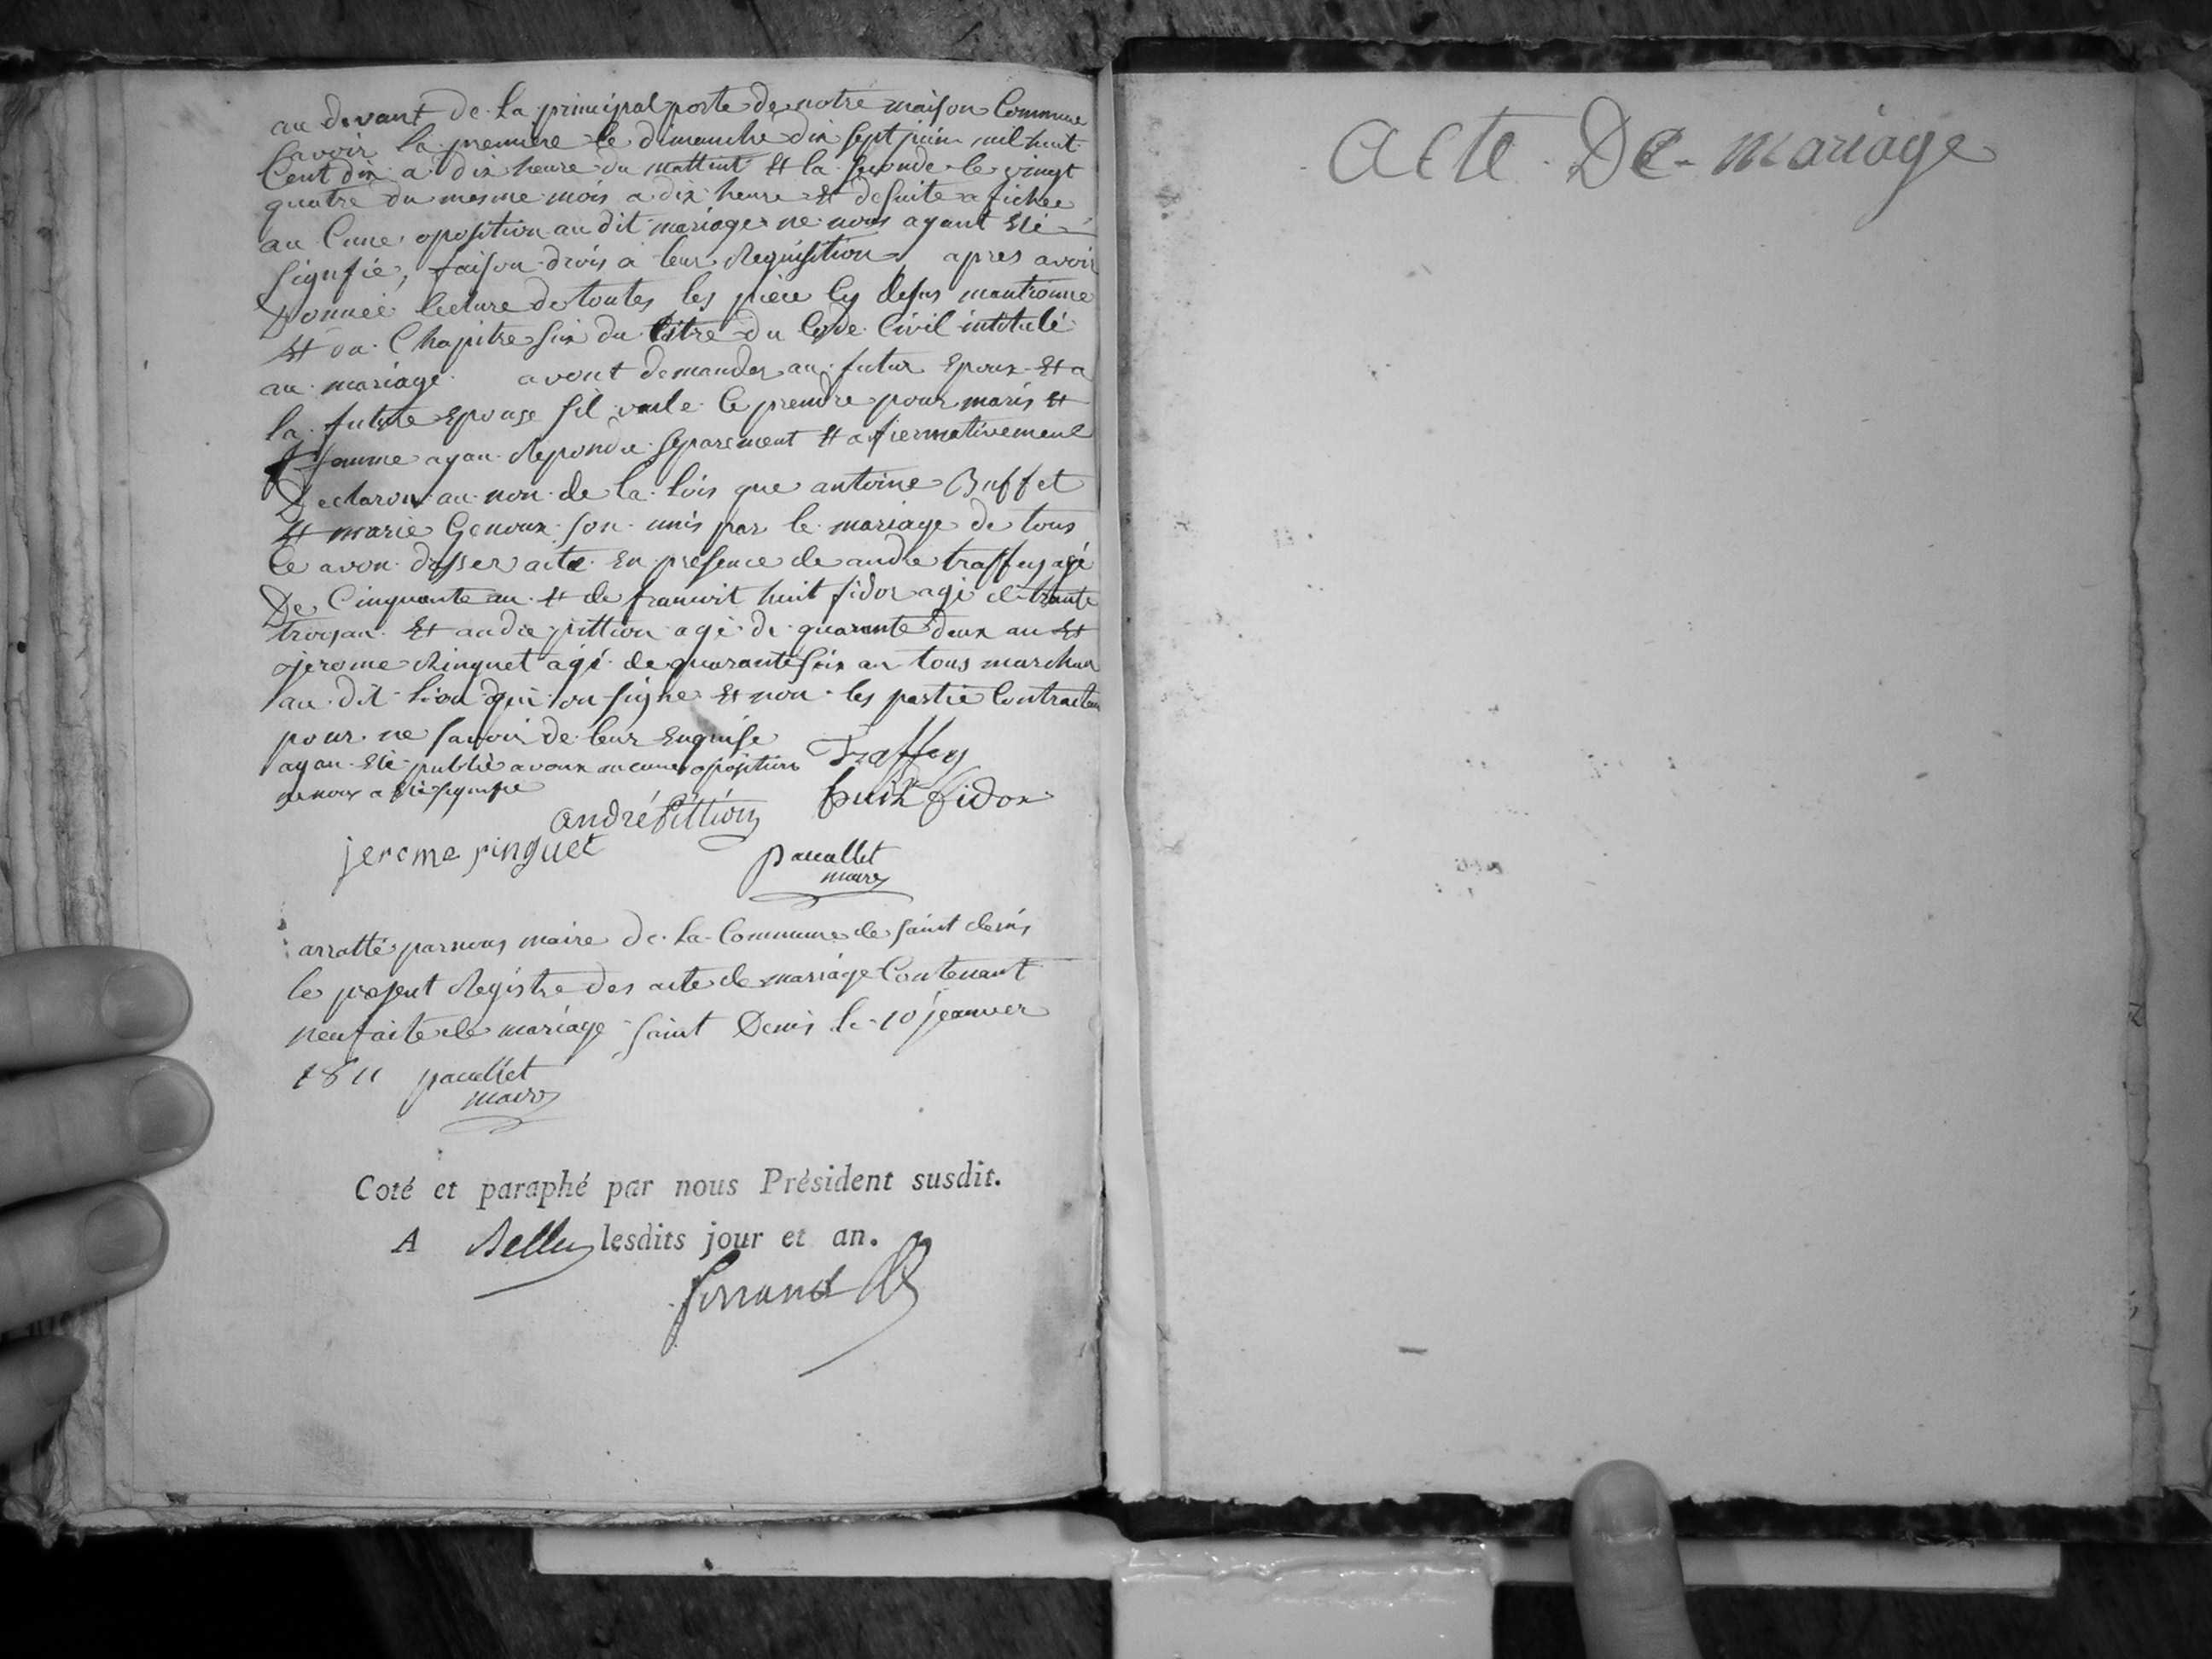 au devant de la principal porte de notre maison Commune
savoir la premiere le dimanche dix sept juin mil huit
Cent dix a dix heure du mattint et la seconde le vingt
quatre du mesme mois a dix heure et desuite afichee
au Cune oposition au dit mariage ne nous ayant eté
signfié, faison drois a leur Requisition apres avoir
Donnée lecture de toutes les piece Cy desus mantionne
et du Chapitre six du titre du Code Civil intitulé
au mariage avont demander au futur epoux et a
la future epouse sil veule ce prendre pour maris et
famme ayan Repondu separement et afiermativement
Declaron au non de la lois que antoine Buffet
et marie Genoux son unis par le mariage de tous
Ce avon dresser acte en presence de andre traffey agé
De Cinquante an et de francoit huit fidor agé de trante
troyan et andre pittion agé de quarante deux an et
jerome Ringuet agé de quarante six an tous
au dit lieu qui on signe et non les partie Contractan
pour ne savoir de leur enquise
ayan eté publié avoux aucune oposition
ne nous a eté signifie
Traffey
huit fidor
andré Pittion
jerome ringuet
pacallet
maire
arratté par nous maire de la Commune de saint denis
le present Registre des acte de mariage Contenant
neuf acte de mariage saint Denis le 10 jeanvier
1811 pacallet
maire
Coté et paraphé par nous Président susdit.
A Belley lesdits jour et an.
ferrand
Acte De mariage